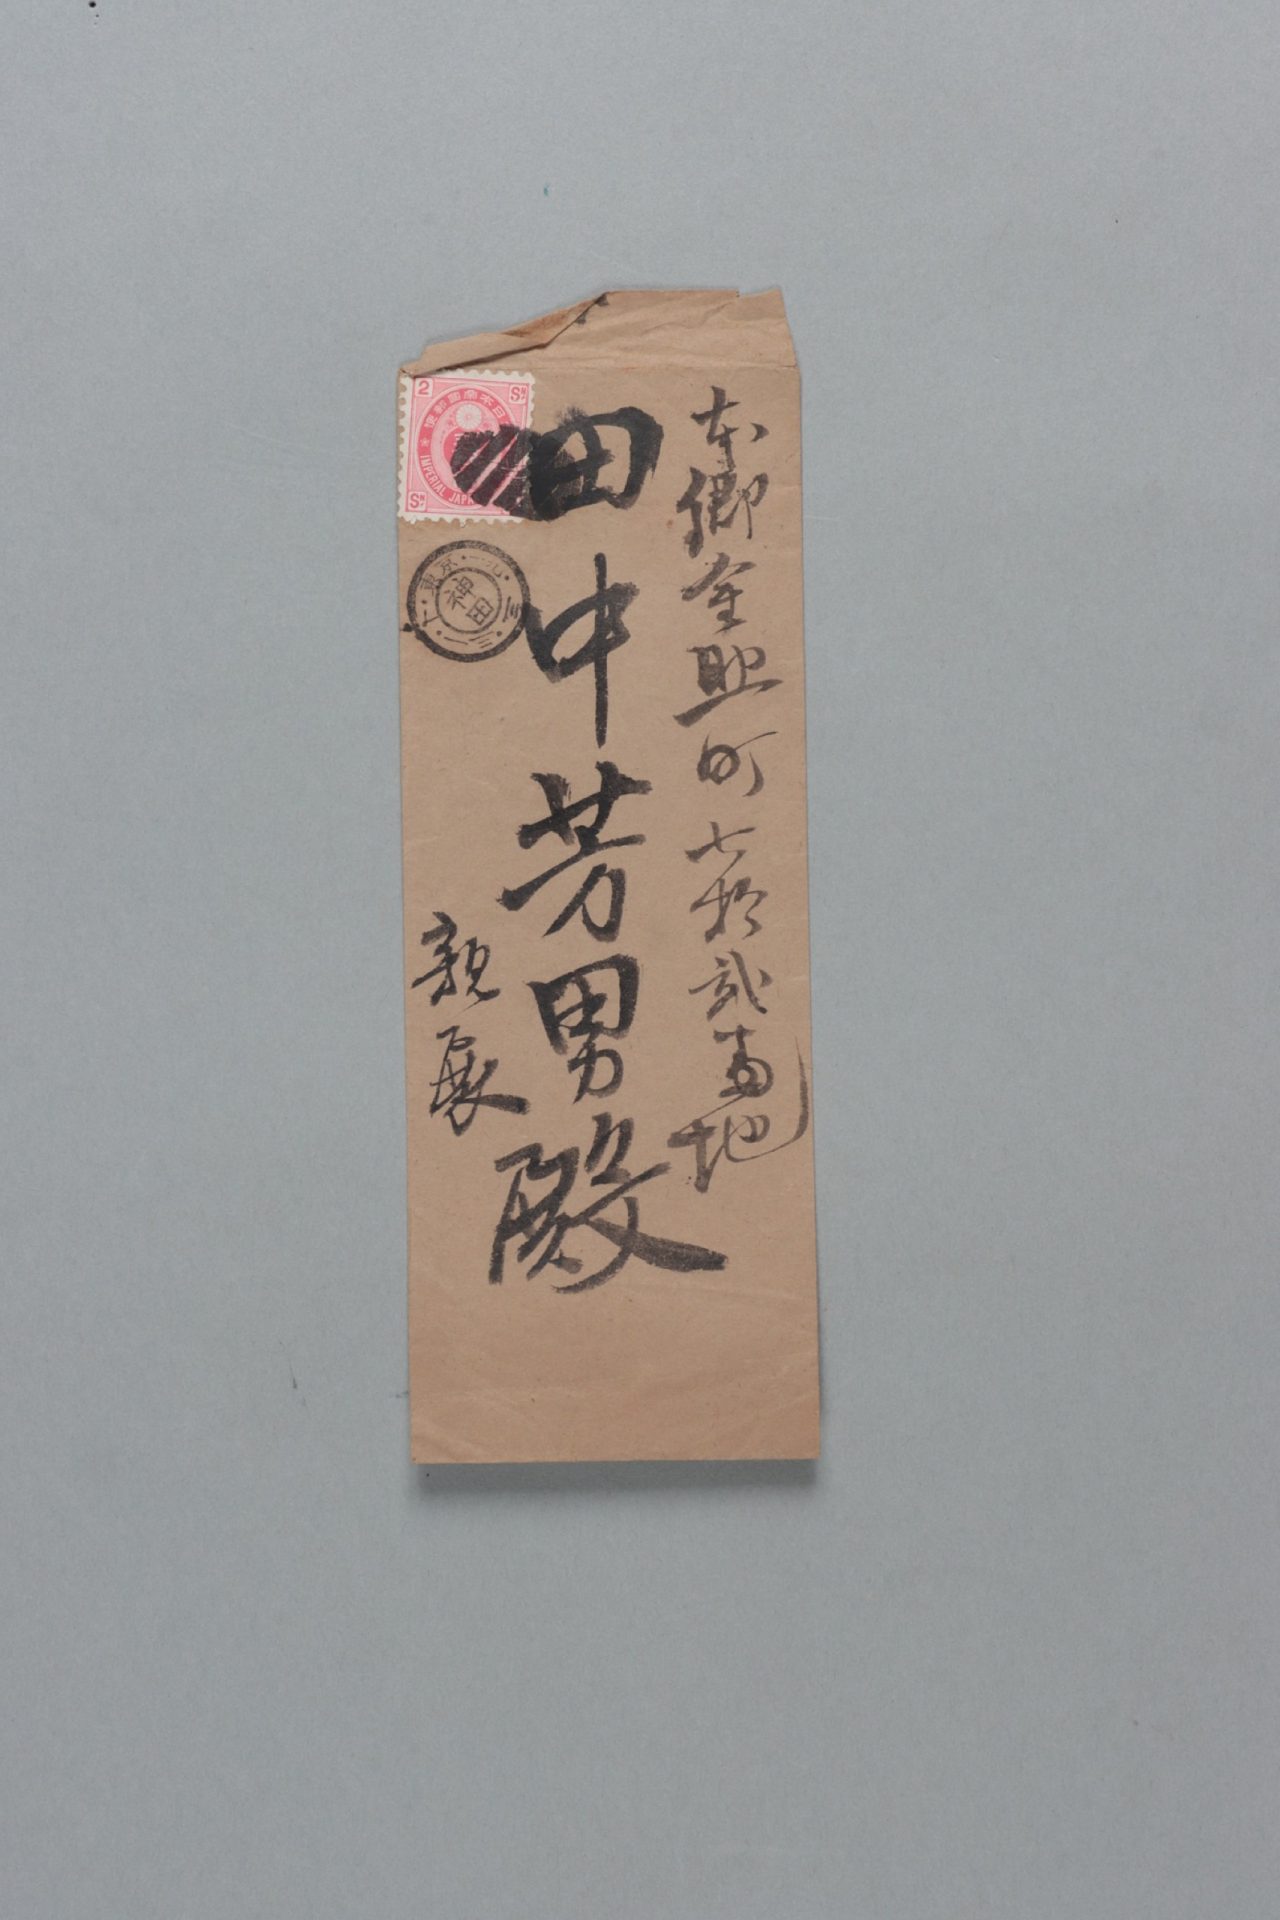 本郷金助町七拾弐番地
田中芳男殿
親展
2 Sɴ
大日本帝國郵便
IMPERIAL JAPA
Sɴ
東京
神田